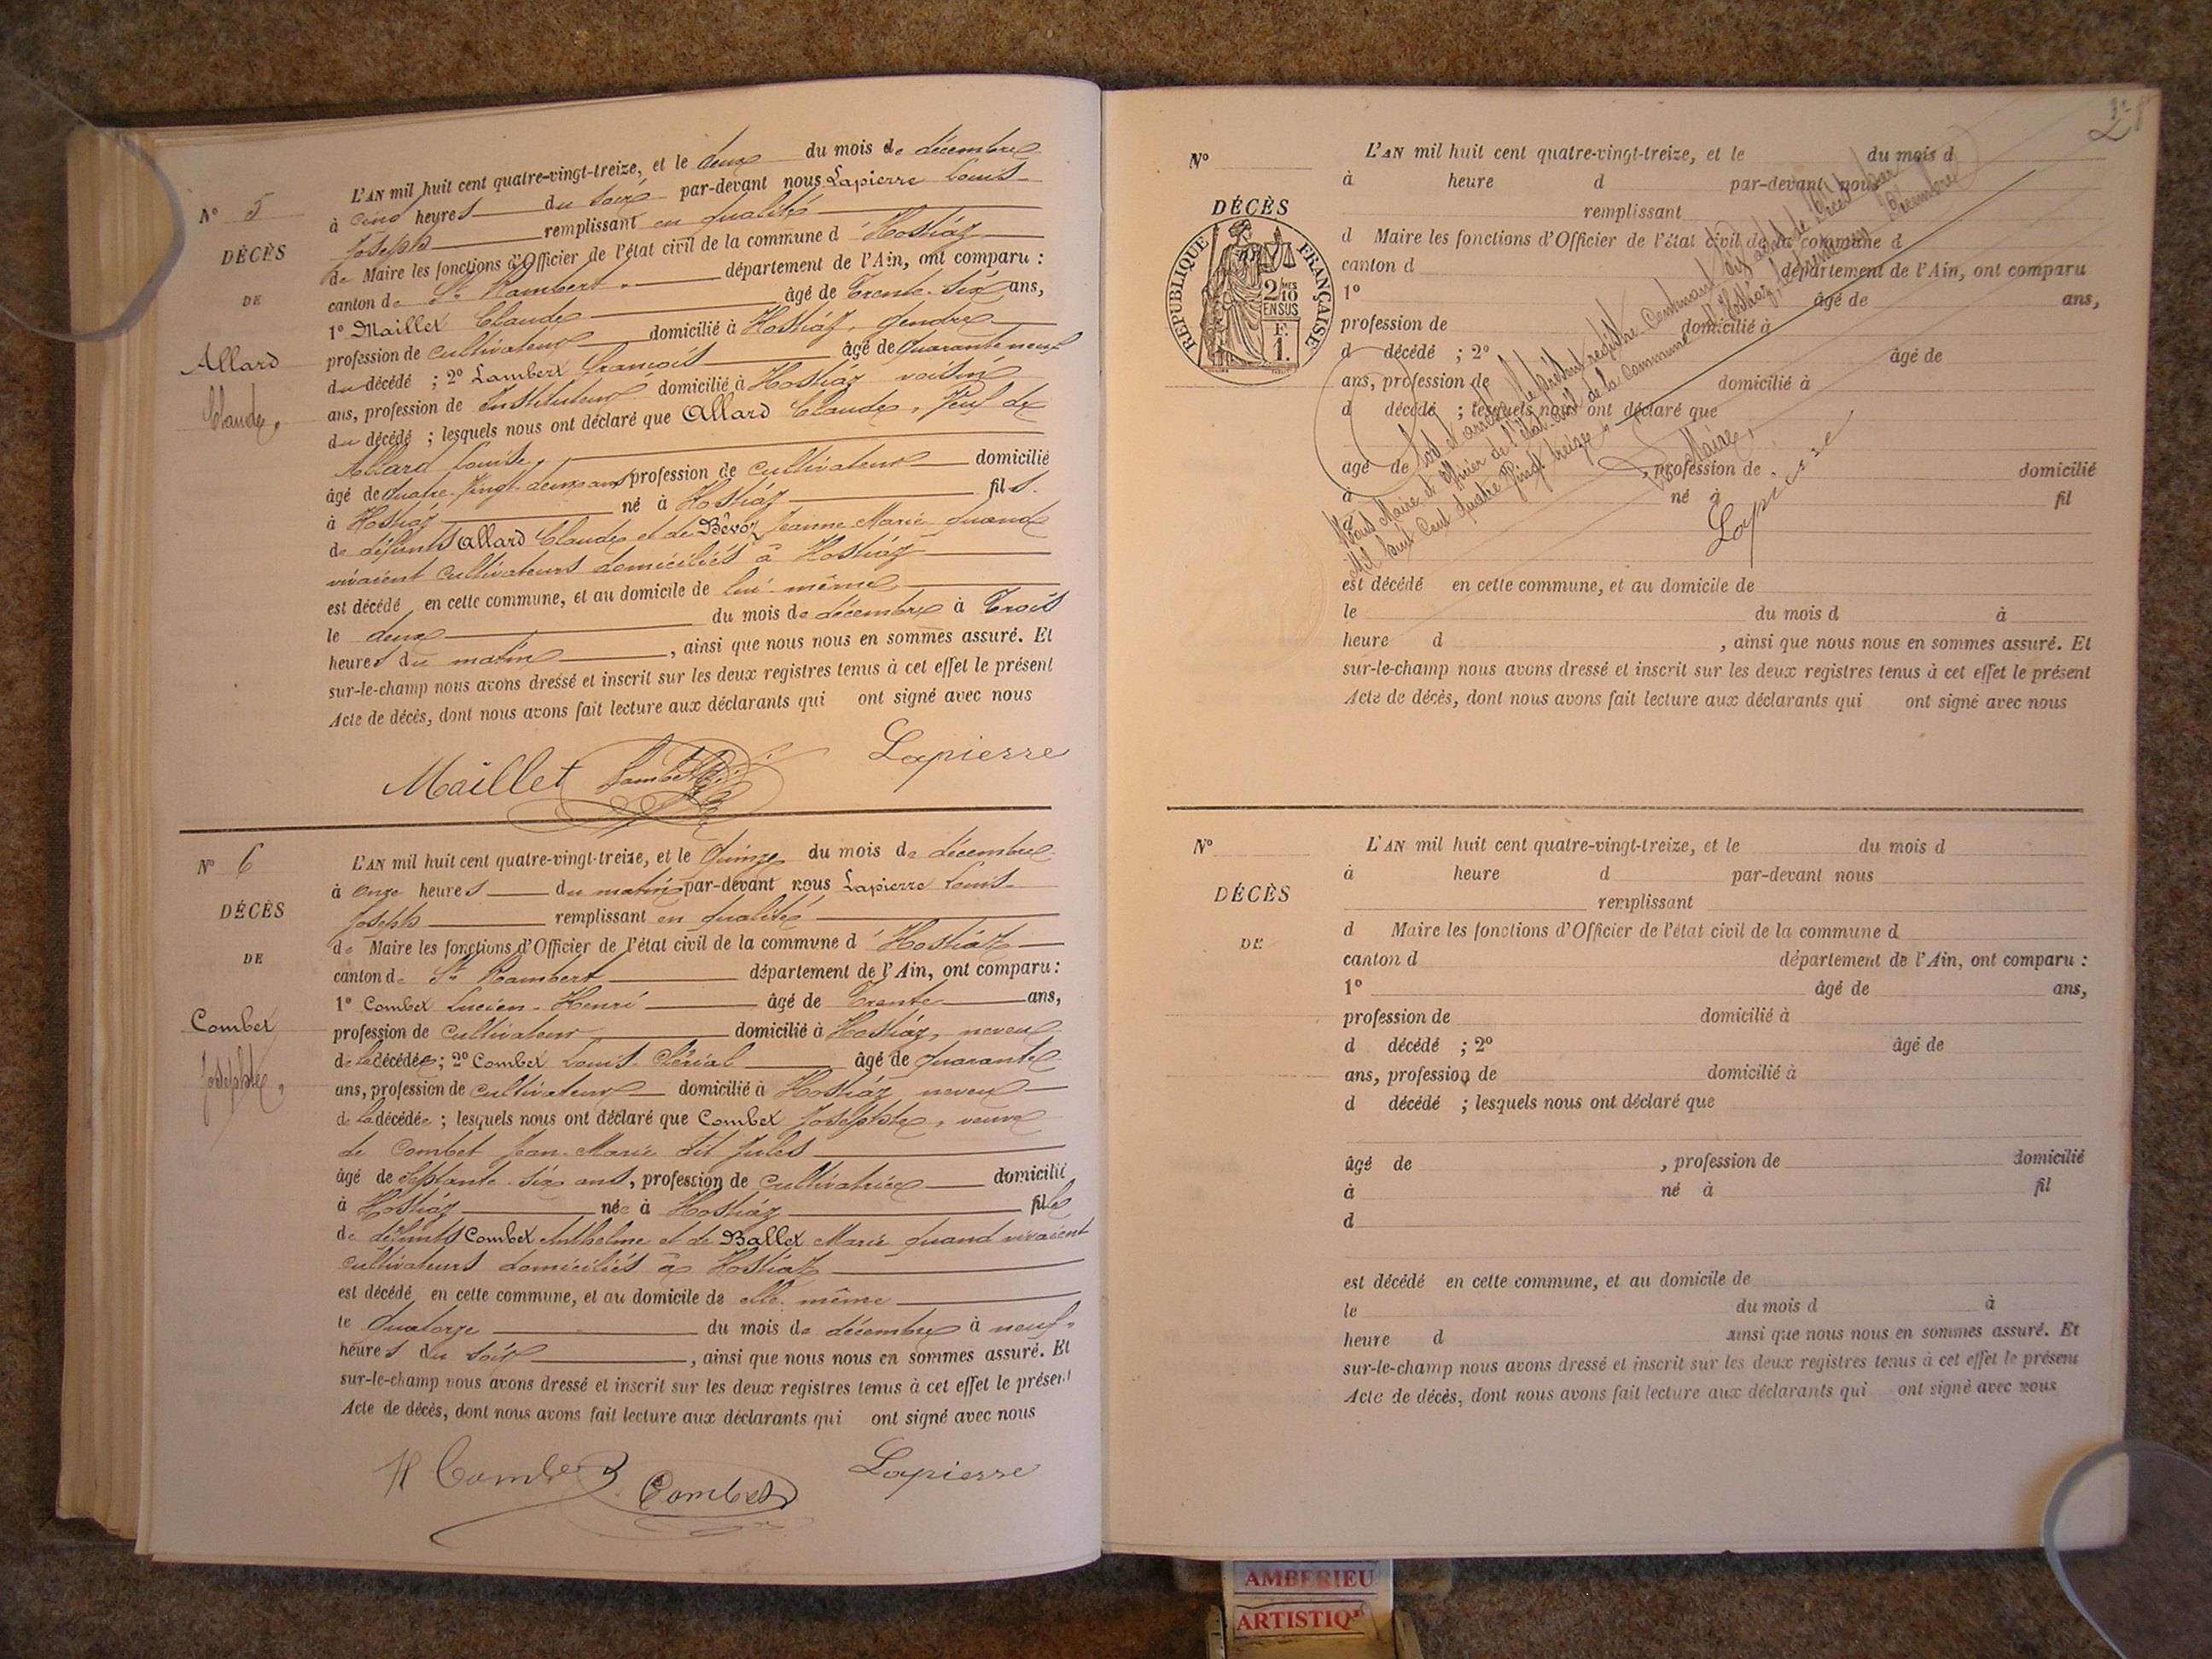 N° 5
DÉCÈS
DE
Allard
Claude,
L'AN mil huit cent quatre-vingt-treize, et le deux du mois de décembre
à cinq heures du soir par-devant nous Lapierre Louis-
Joseph remplissant en qualité
de Maire les fonctions d'Officier de l'état civil de la commune d'Hostiaz
canton de St Rambert département de l'Ain, ont comparu :
1° Maillet Claude âgé de Trente-six ans,
profession de cultivateur domicilié à Hostiaz, gendre
du décédé ; 2° Lambert François âgé de quarante neuf
ans, profession de Instituteur domicilié à Hostiaz voisin
du décédé ; lesquels nous ont déclaré que Allard Claude, Veuf de
Allard Louise,
âgé de quatre-Vingt-deux ans profession de cultivateur domicilié
à Hostiaz né à Hostiaz fils.
de défunts Allard Claude et de Bévoz Jeanne Marie quand
vivaient cultivateurs domiciliés à Hostiaz
est décédé en cette commune, et au domicile de lui-même
le deux du mois de décembre à Trois
heures du matin, ainsi que nous nous en sommes assuré. Et
sur-le-champ nous avons dressé et inscrit sur les deux registres tenus à cet effet le présent
Acte de décès, dont nous avons fait lecture aux déclarants qui ont signé avec nous
Maillet Lambert Lapierre
N° 6
DÉCÈS
DE
Combet
Josephte,
L'AN mil huit cent quatre-vingt-treize, et le Quinze du mois de décembre
à onze heures du matin par-devant nous Lapierre Louis-
Joseph remplissant en qualité
de Maire les fonctions d'Officier de l'état civil de la commune d'Hostiaz
canton de St Rambert département de l'Ain, ont comparu :
1° Combet Lucien-Henri âgé de Trente ans,
profession de cultivateur domicilié à Hostiaz, neveu
de la décédée ; 2° Combet Louis-Clérial âgé de quarante
ans, profession de cultivateur domicilié à Hostiaz neveu
de la décédée ; lesquels nous ont déclaré que Combet Josephte, veuve
de Combet Jean-Marie dit Jules
âgé de septante-six ans, profession de cultivatrice domicilié
à Hostiaz née à Hostiaz fille
de défunts Combet Anthelme et de Ballet Marie quand vivaient
cultivateurs domiciliés à Hostiaz
est décédé en cette commune, et au domicile de elle-même
le Quatorze du mois de décembre à neuf
heures du soir, ainsi que nous nous en sommes assuré. Et
sur-le-champ nous avons dressé et inscrit sur les deux registres tenus à cet effet le présent
Acte de décès, dont nous avons fait lecture aux déclarants qui ont signé avec nous
H Combet Combet Lapierre
N°
DÉCÈS
RÉPUBLIQUE FRANÇAISE
2/10 MES
EN SUS
F.
1.
L'AN mil huit cent quatre-vingt-treize, et le du mois d
à heure d par-devant nous
remplissant
d Maire les fonctions d'Officier de l'état civil de la commune d
canton d département de l'Ain, ont comparu
1° âgé de ans,
profession de domicilié à
d décédé ; 2° âgé de
ans, profession de domicilié à
d décédé ; lesquels nous ont déclaré que
âgé de profession de domicilié
à né à fil
est décédé en cette commune, et au domicile de
le du mois d à
heure d , ainsi que nous nous en sommes assuré. Et
sur-le-champ nous avons dressé et inscrit sur les deux registres tenus à cet effet le présent
Acte de décès, dont nous avons fait lecture aux déclarants qui ont signé avec nous
Clos et arrêté le présent registre Contenant Six actes de Décès par
Nous Maire et officier de l'état civil de la Commune d'Hostiaz, le trente un Décembre
Mil huit Cent quatre Vingt treize,
Le Maire,
Lapierre
N°
DÉCÈS
DE
L'AN mil huit cent quatre-vingt-treize, et le du mois d
à heure d par-devant nous
remplissant
d Maire les fonctions d'Officier de l'état civil de la commune d
canton d département de l'Ain, ont comparu :
1° âgé de ans,
profession de domicilié à
d décédé ; 2° âgé de
ans, profession de domicilié à
d décédé ; lesquels nous ont déclaré que
âgé de , profession de domicilié
à né à fil
d
est décédé en cette commune, et au domicile de
le du mois d à
heure d ainsi que nous nous en sommes assuré. Et
sur-le-champ nous avons dressé et inscrit sur les deux registres tenus à cet effet le présent
Acte de décès, dont nous avons fait lecture aux déclarants qui ont signé avec nous
AMBERIEU
ARTISTIQ